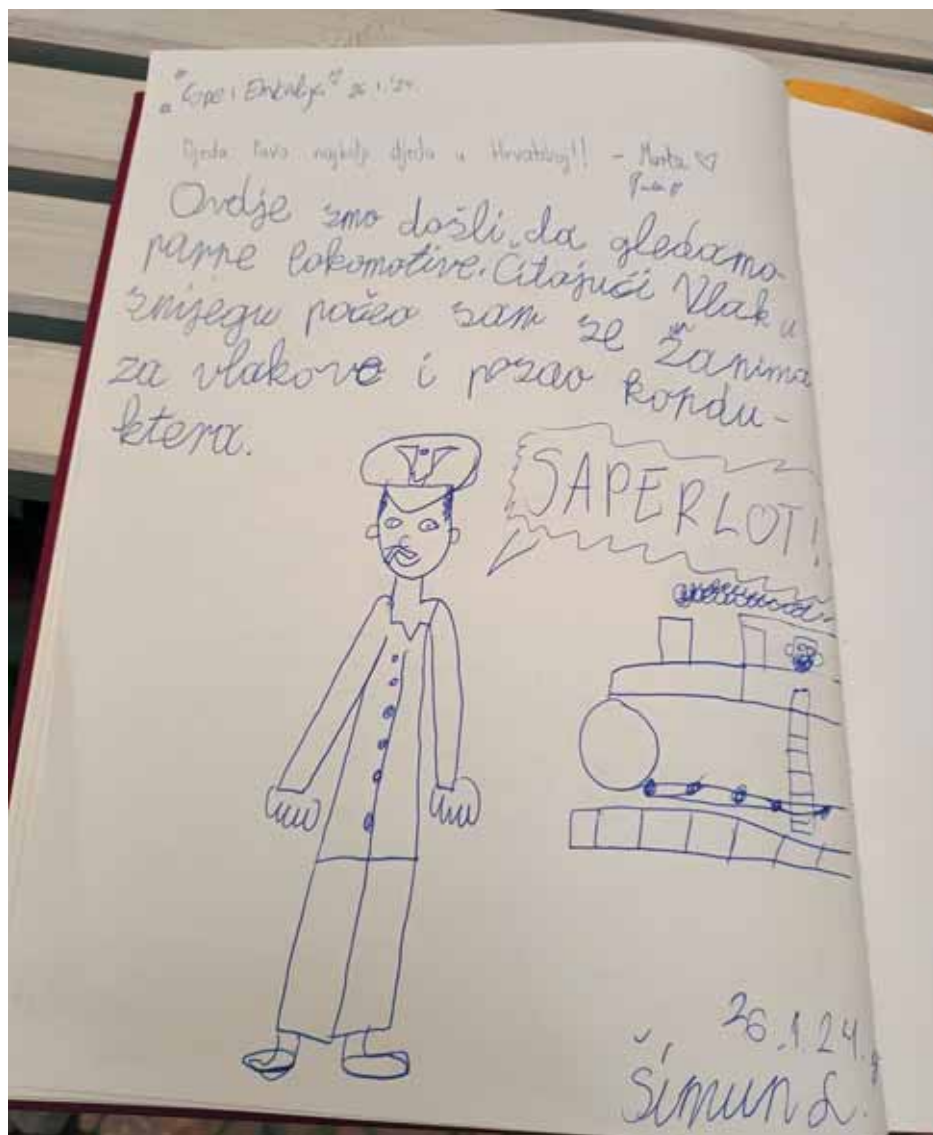 26.1.'24.
Djeda najbolji djeda u Hrvatskoj!! - Marta ♡
Ovdje smo došli da gledamo
parne lokomotive. Čitajući Vlak u
snijegu počeo sam se zanima
za vlakove i pozao kondu-
ktera.
SAPERLOT!
26.1.24.
Šimun L.